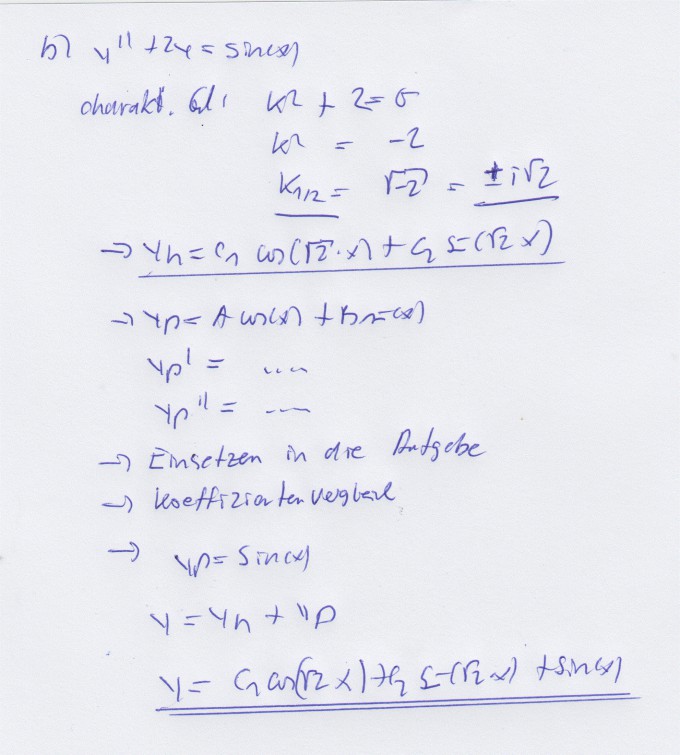 b) y'' + 2y = sin(x)
charakt. Gl: k² + 2 = 0
k² = -2
k1/2 = √-2 = ± i√2
→ yh = C1 cos(√2·x) + C2 sin(√2 x)
→ yp = A cos(x) + B sin(x)
yp' = ....
yp'' = ....
→ Einsetzen in die Aufgabe
→ Koeffizientenvergleich
→ yp = sin(x)
y = yh + yp
y = C1 cos(√2 x) + C2 sin(√2 x) + sin(x)